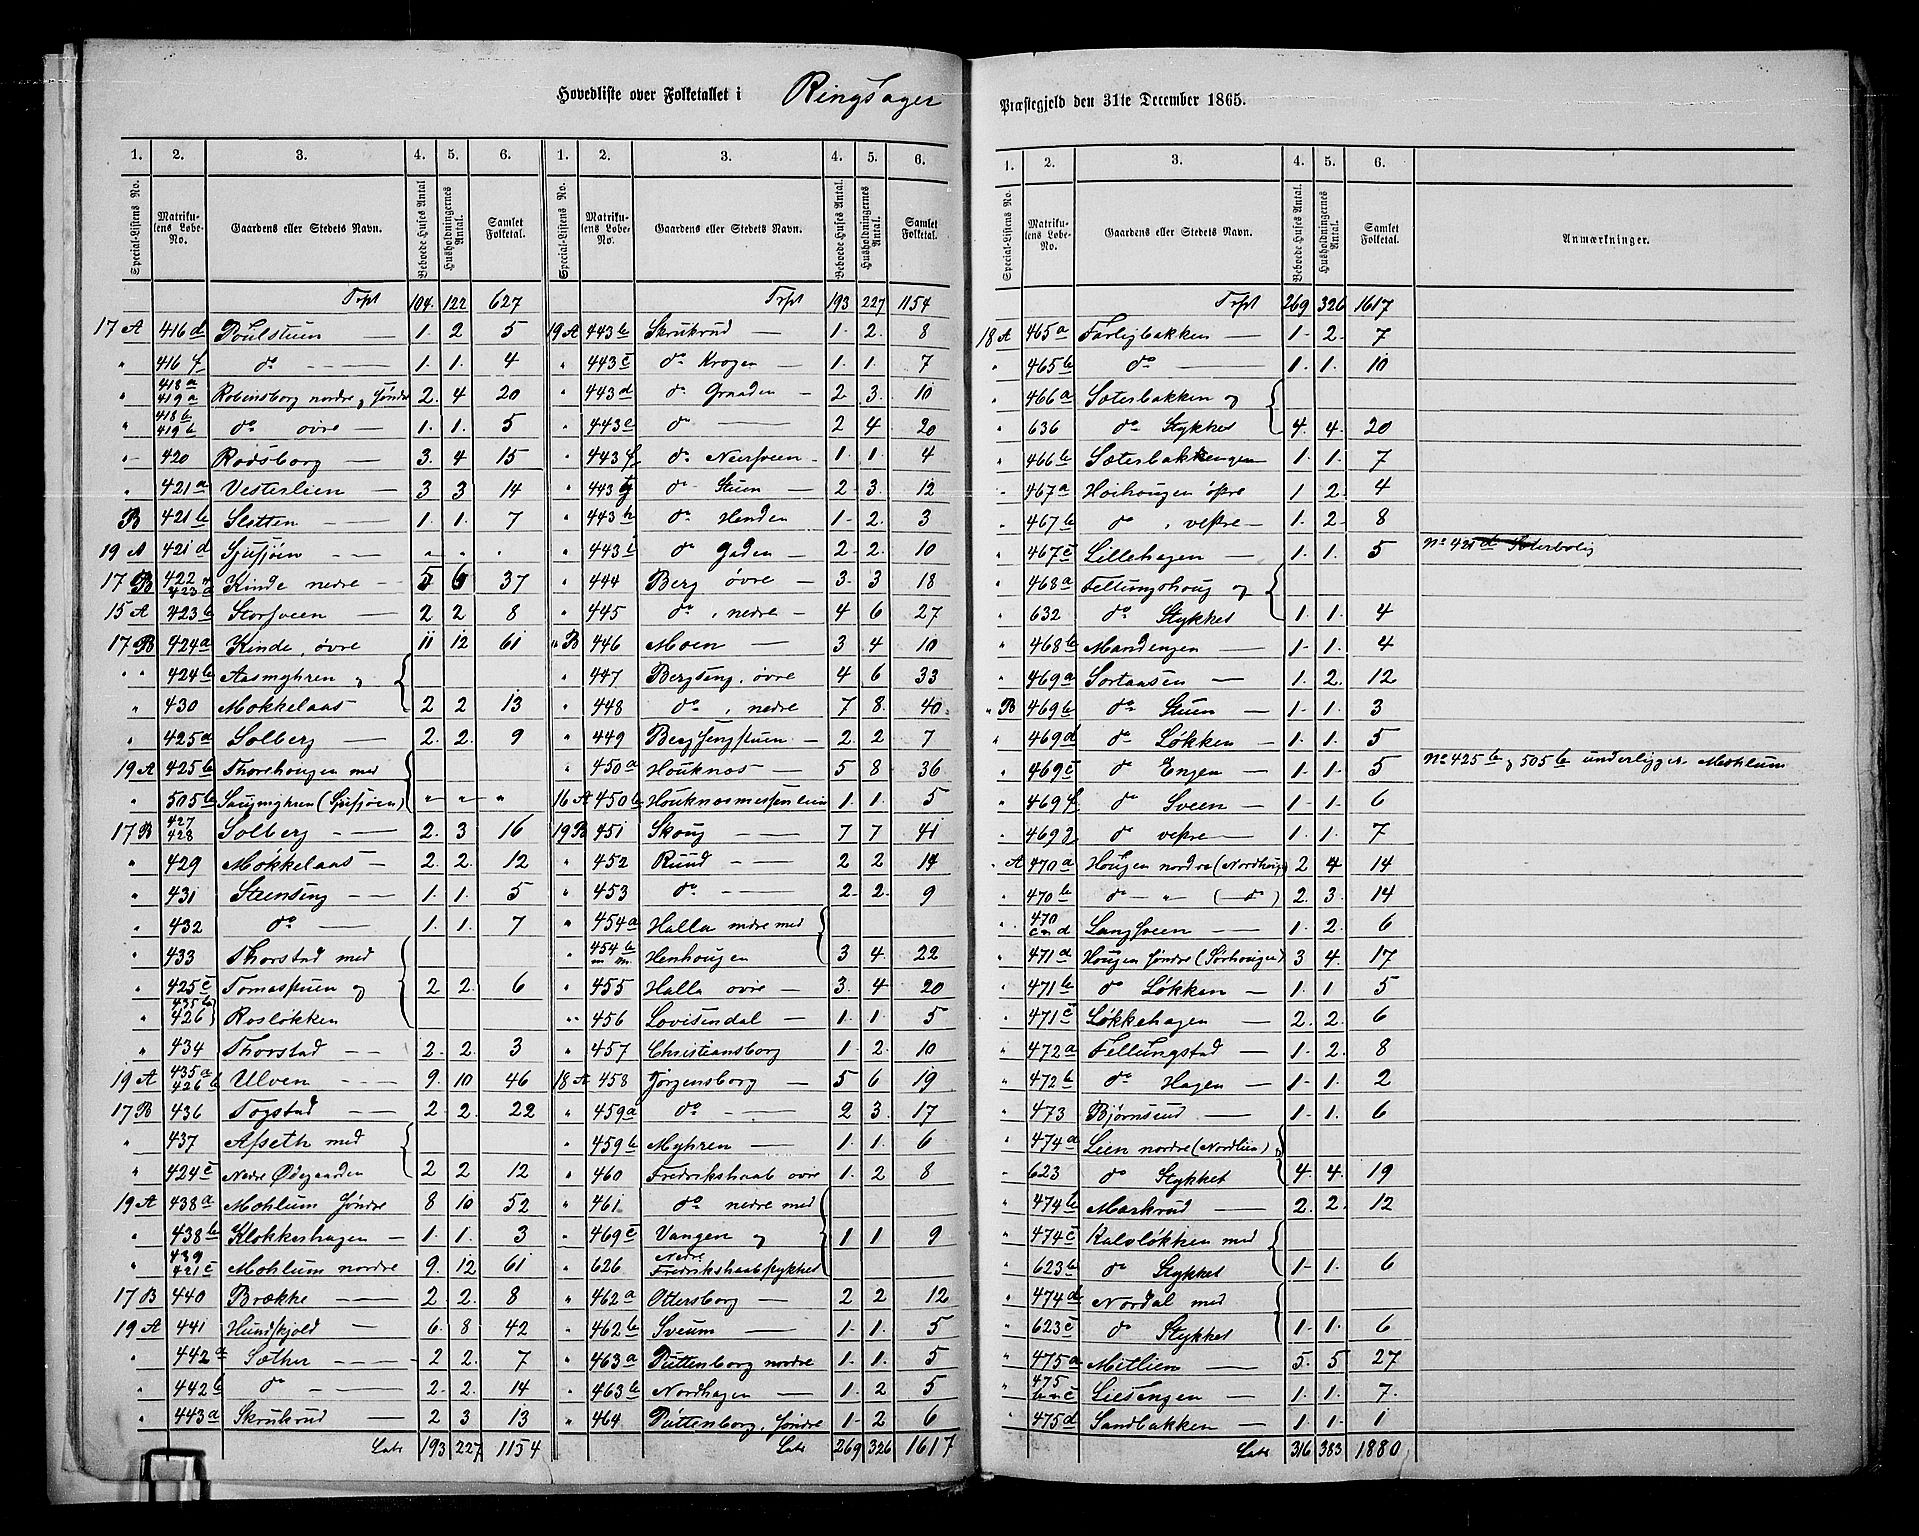 Hovedliste over Folketallet i Ringsager Præstegjeld den 31te December 1865.
1. 2. 3. 4. 5. 6. 1. 2. 3. 4. 5. 6.
Special-Listens No. Matrikulens Løbe-No. Gaardens eller Stedets Navn. Beboede Huses Antal Husholdningernes Antal. Samlet Folketal. Special-Listens No. Matrikulens Løbe-No. Gaardens eller Stedets Navn. Beboede Huses Antal. Husholdningernes Antal. Samlet Folketal.
Trpt 104. 122 627
17 A 416 d Poulstuen 1. 2 5
" 416 f do 1. 1. 4
" 418 a 419 a Robinsborg nordre og søndre 2. 4 20
" 418 b 419 b do øvre 1. 1. 5
" 420 Rodsborg 3. 4 15
" 421 a Vesterlien 3 3 14
B 421 b Sletten 1. 1. 7
19 A 421 d Sjusjøen " " "
17 B 422 & 423 a Kinde nedre 5 6 37
15 A 423 b Storsveen 2 2 8
17 B 424 a Kinde, øvre 11 12 61
" " 424 b Aasmyhren og
" 430 Mokkelaas 2 2 13
" 425 a Solberg 2. 2. 9
19 A 425 b Thorehougen med
" 505 b Saugmyhren (Sjusjøen) " " "
17 B 427 428 Solberg 2. 3 16
" 429 Møkkelaas 2. 2. 12
" 431 Steensing 1. 1. 5
" 432 do 1. 1. 7
" 433 Thorstad med
" 425 c Tomasstuen og 2 2. 6
" 435 b 426 Rosløkken
" 434 Thorstad 2. 2. 3
19 A 435 a 426 b Ulven 9. 10 46
17 B 436 Togstad 2 2. 22
" 437 Afseth med
" 424 c Nedre Ødegaarden 2 2 12
19 A 438 a Mohlum søndre 8 10 52
" 438 b Klokkerhagen 1. 1. 3
" 439 421 c Mohlum nordre 9. 12 61
17 B 440 Brække 2 2. 8
19 A 441 Hundskjold 6. 8 42
" 442 a Sæther 2 2. 7
" 442 b do 2. 2. 14
" 443 a Skrukrud 2 3 13
Lats 193 227 1154
Trpt 193 227 1154
19 A 443 b Skrukrud 1. 2. 8
" 443 c do Krogen 1. 1. 7
" 443 d do Graaden 2 3. 10
" 443 e do 2 4 20
" 443 f do Neersveen 1. 1. 4
" 443 g do Stuen 2 3. 12
" 443 h do Henden 1 2. 3
" 443 i do Gaden 2 2. 10
" 444 Berg øvre 3. 3 18
" 445 do, nedre 4 6 27
" B 446 Moen 3 4 10
" 447 Bergseng, øvre 4 6 33
" 448 do, nedre 7 8. 40
" 449 Bergsengstuen 2. 2 7
" 450 a Houknæs 5 8 36
16 A 450 b Houknæsmessenlien 1. 1. 5
19 B 451 Skoug 7 7 41
" 452 Rund 2 2 14
" 453 do 2 2. 9
" 454 a Halla nedre med
" 454 b Henhougen 3 4. 22
" 455 Halla øvre 3. 4 20
" 456 Lovisendal 1. 1. 5
" 457 Christiansborg 1. 2. 10
18 A 458 Jørgensborg 5 6 19
" 459 a do 2 3. 17
" 459 b Myhren 1. 1. 6
" 460 Fredrikshaab øvre 1. 2 8
" 461 do nedre med
" 469 c Vangen og 1 1 9
" 626 Nedre Fredrikshaabstykket
" 462 a Ottersborg 2 2 12
" 462 b Sveum 1. 1. 5
" 463 a Puttenborg nordre 1. 1. 5
" 463 b Nordhagen 1. 2 5
" 464 Puttenborg, søndre 1. 2 6
Lats 269 326 1617
1. 2. 3. 4. 5. 6.
Special-Listens No. Matrikulens Løbe-No. Gaardens eller Stedets Navn. Beboede Huses Antal. Husholdningernes Antal. Samlet Folketal. Anmærkninger.
Trpt 269 326 1617
18 A 465 a Farligbakken 1. 2. 7
" 465 b do 1. 1. 10
" 466 a Sæterbakken og
" 636 do Stykket 4. 4. 20
" 466 b Sæterbakkengen 1. 1. 7
" 467 a Høihougen østre 1 2. 4
" 467 b do, vestre 1. 2 8
" 467 c Lillehagen 1. 1. 5 No 421 d Sæterbolig
" 468 a Fellungshoug og
" 632 do Stykket 1. 1. 4
" 468 b Mandengen 1. 1. 4
" 469 a Sortaasen 1. 2. 12
" B 469 b do Stuen 1. 1. 3
" 469 d do Løkken 1. 1. 5
" 469 e do Engen 1. 1. 5 No 425 b og 505 b underligger Mohlum
" 469 f do Sveen 1. 1. 6
" 469 g do vestre 1. 1. 7
" A 470 a Hougen nordre (Nordhoug) 2 4 14
" 470 b do " (do) 2. 3. 14
" 470 c & d Langsveen 1. 2 6
" 471 a Hougen søndre (Sørhougen) 3 4. 17
" 471 b do Løkken 1. 1 5
" 471 c Løkkehagen 2. 2. 6
" 472 a Fellungstad 1. 2. 8
" 472 b do Hagen 1. 1. 2
" 473 Bjørnsund 1. 1. 6
" 474 a Lien nordre (Nordlien)
" 623 do Stykket 4. 4. 19
" 474 b Markrud 2. 2. 12
" 474 c Kalsløkken med
" 623 b do Stykket 1. 1. 6
" 474 d Nordal med
" 623 c do Stykket 1. 1. 6
" 475 a Mitlien 5. 5 27
" 475 b & c Liesengen 1. 1. 7.
" 475 d Sandbakken 1. 1. 1
Lats 316 383 1880